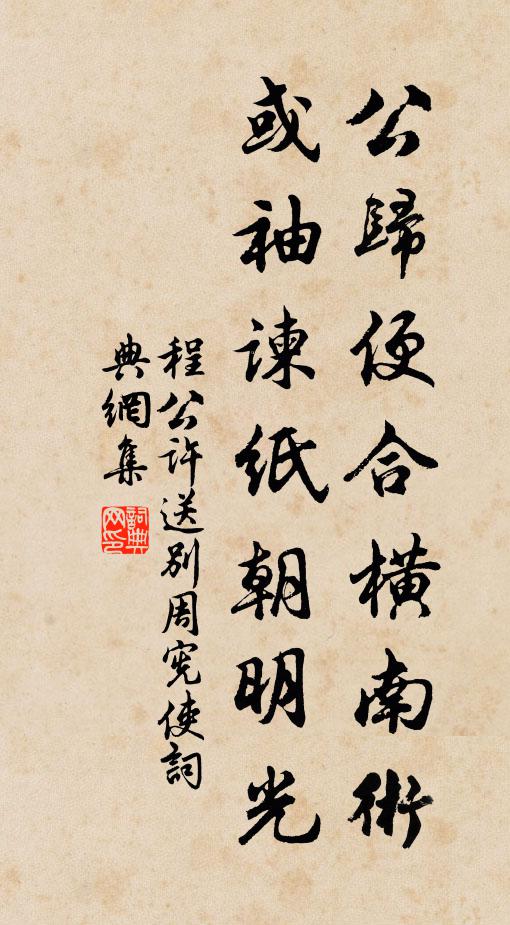 公歸便合橫南術
或袖諫紙朝明光
程公許送別周憲使詞
典網集
詞典網印